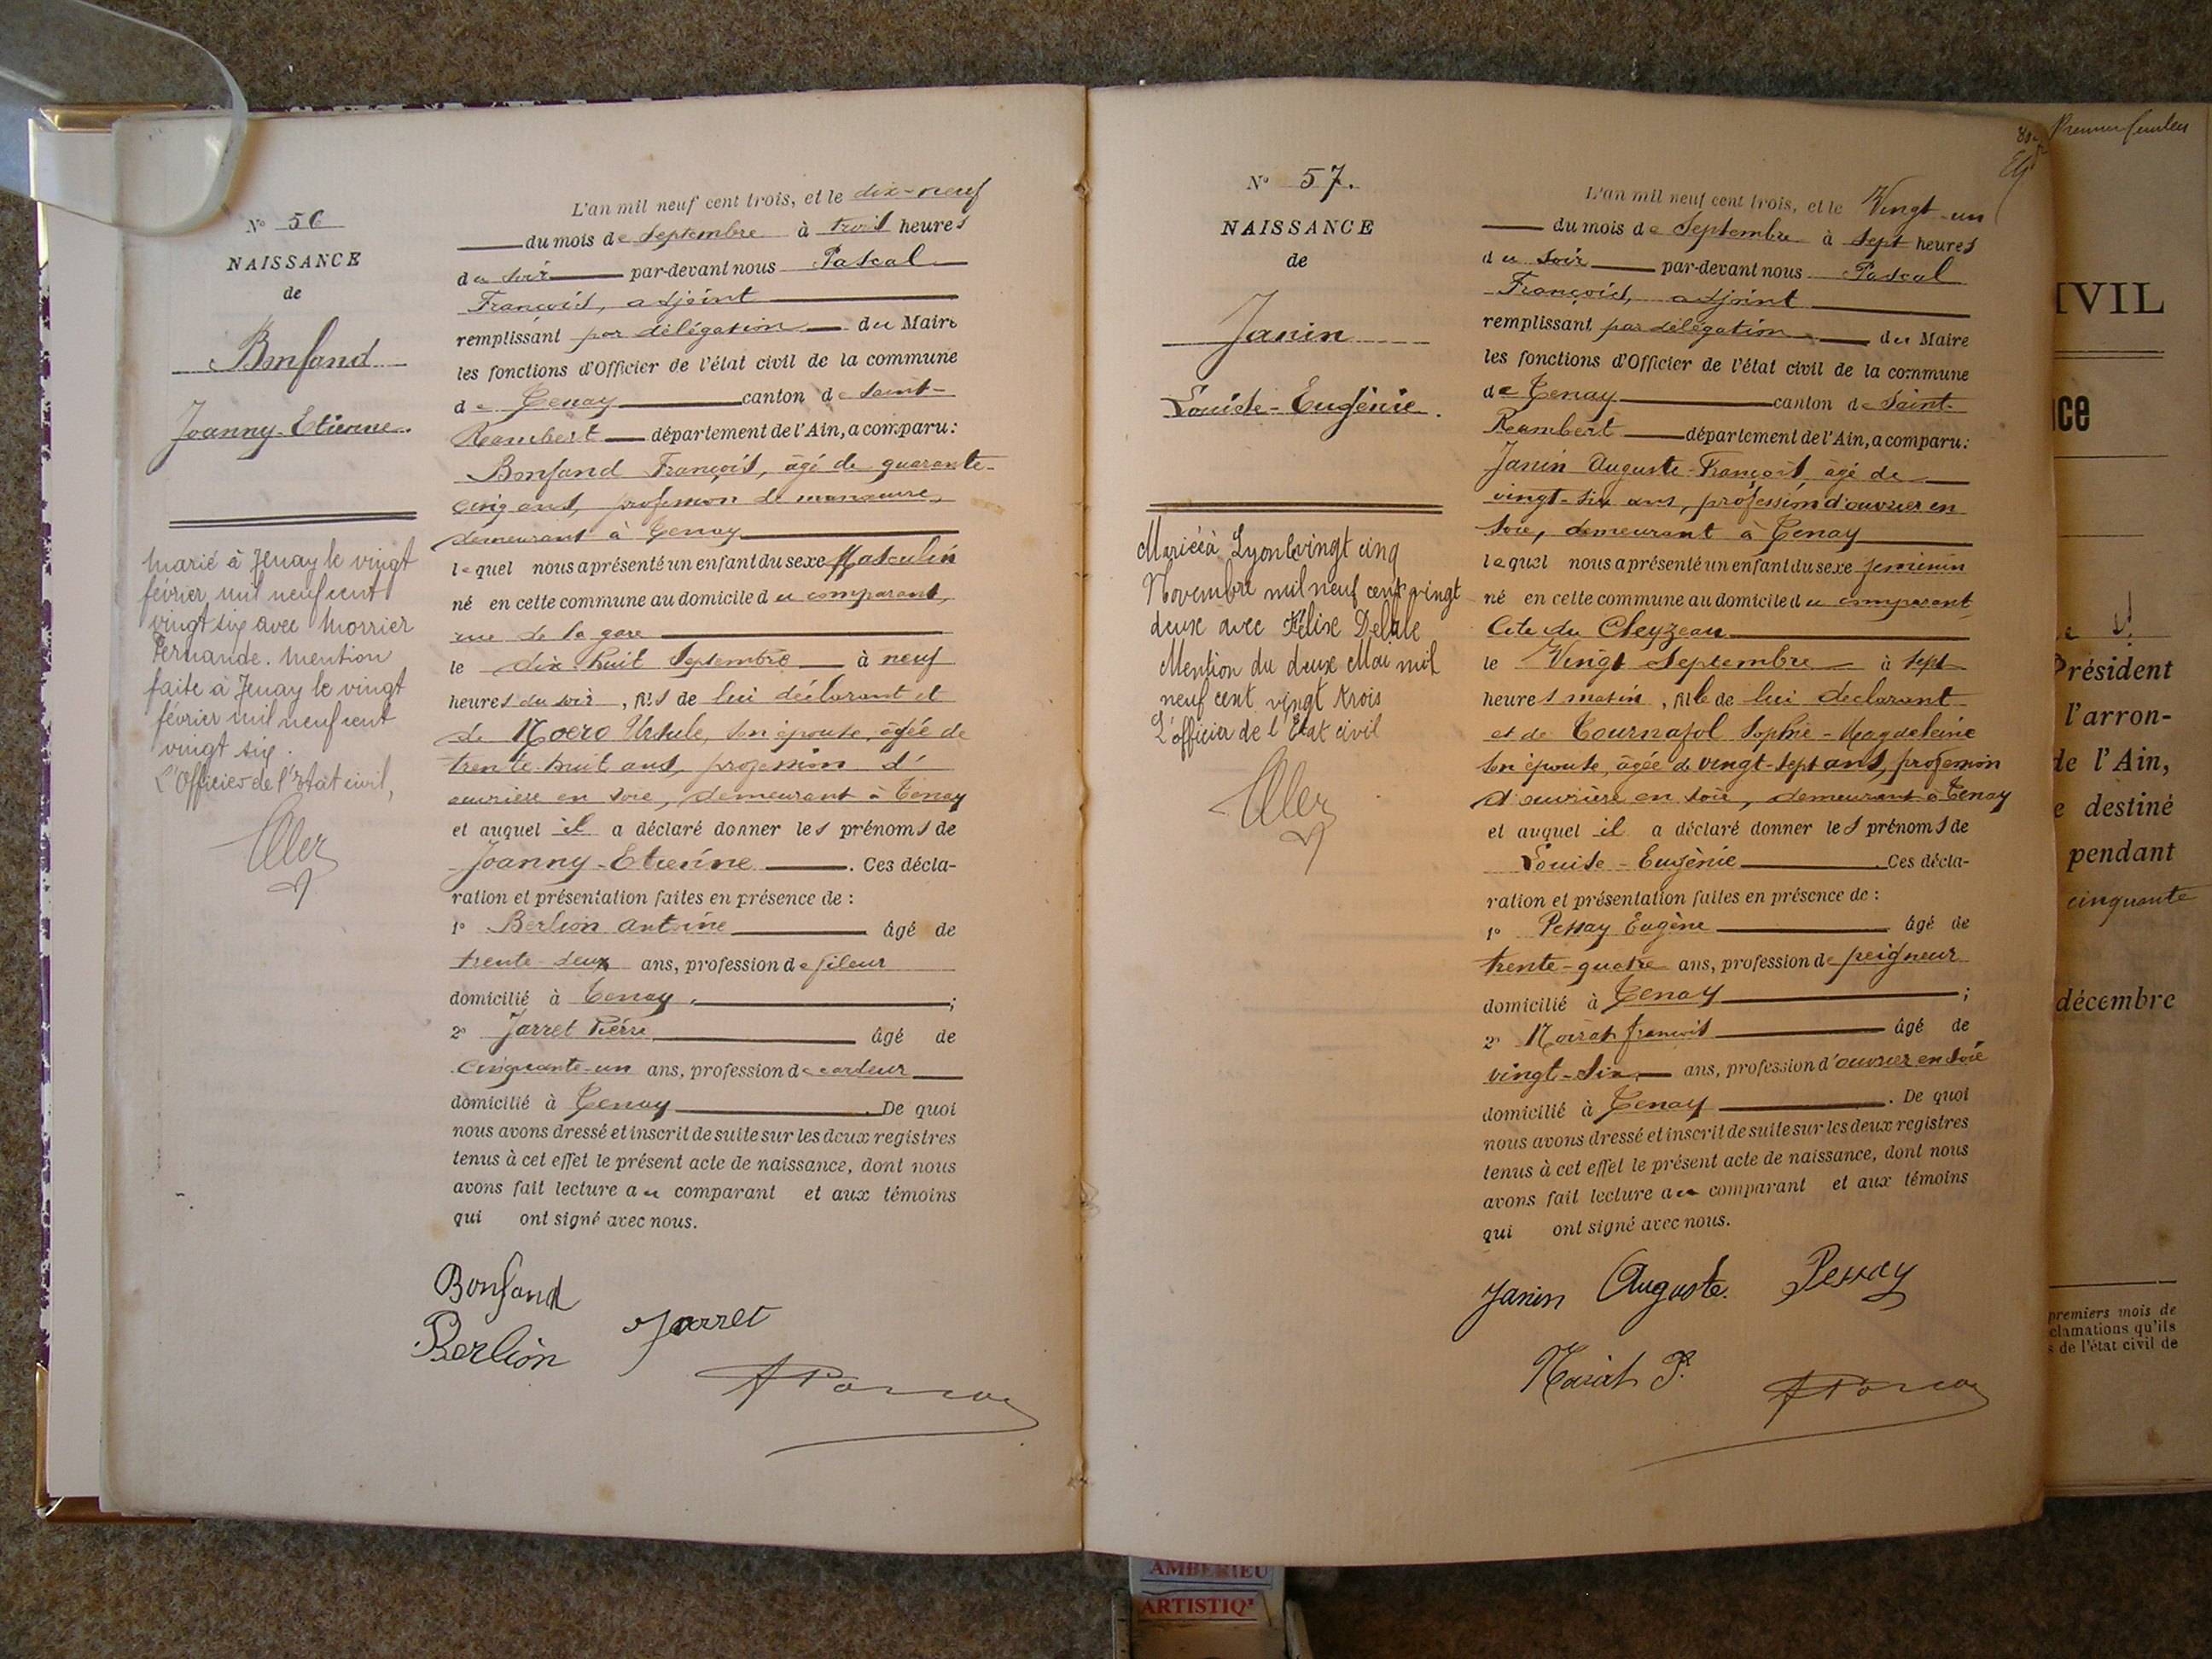 N° 56
NAISSANCE
de
Bonfand
Joanny-Etienne.
Marié à Tenay le vingt
février mil neuf cent
vingt six avec Morrier
Fernande. Mention
faite à Tenay le vingt
février mil neuf cent
vingt six.
L'Officier de l'Etat civil,
L'an mil neuf cent trois, et le dix-neuf
du mois de Septembre à trois heures
du soir par-devant nous Pascal
François, adjoint
remplissant par délégation du Maire
les fonctions d'Officier de l'état civil de la commune
de Tenay canton de Saint-
Rambert département de l'Ain, a comparu:
Bonfand François, âgé de quarante-
cinq ans, profession de manœuvre,
demeurant à Tenay
lequel nous a présenté un enfant du sexe Masculin
né en cette commune au domicile du comparant,
rue de la gare
le dix-huit Septembre à neuf
heures du soir, fils de lui déclarant et
de Moero Ursule, son épouse, âgée de
trente-huit ans, profession d'
ouvrière en soie, demeurant à Tenay
et auquel il a déclaré donner les prénoms de
Joanny-Etienne. Ces décla-
ration et présentation faites en présence de :
1° Berlion Antoine âgé de
trente-deux ans, profession de fileur
domicilié à Tenay. ;
2° Jarret Pierre âgé de
cinquante-un ans, profession de cardeur
domicilié à Tenay. De quoi
nous avons dressé et inscrit de suite sur les deux registres
tenus à cet effet le présent acte de naissance, dont nous
avons fait lecture au comparant et aux témoins
qui ont signé avec nous.
Bonfand
Berlion Jarret
N° 57.
NAISSANCE
de
Janin
Louise-Eugénie.
Mariée à Lyon le vingt cinq
Novembre mil neuf cent vingt
deux avec Félix Delale
Mention du deux Mai mil
neuf cent vingt trois
L'officier de l'Etat civil
L'an mil neuf cent trois, et le Vingt-un
du mois de Septembre à sept heures
du soir par-devant nous Pascal
François, adjoint
remplissant par délégation du Maire
les fonctions d'Officier de l'état civil de la commune
de Tenay canton de Saint-
Rambert département de l'Ain, a comparu:
Janin Auguste-François âgé de
vingt-six ans, profession d'ouvrier en
soie, demeurant à Tenay
lequel nous a présenté un enfant du sexe féminin
né en cette commune au domicile du comparant
Cité du Cheyzeau
le Vingt Septembre à sept
heures matin, fille de lui déclarant
et de Tournafol Sophie-Magdeleine
son épouse, âgée de vingt-sept ans, profession
d'ouvrière en soie, demeurant à Tenay
et auquel il a déclaré donner les prénoms de
Louise-Eugénie. Ces décla-
ration et présentation faites en présence de :
1° Pessay Eugène âgé de
trente-quatre ans, profession de peigneur
domicilié à Tenay ;
2° Moirat François âgé de
vingt-six ans, profession d'ouvrier en soie
domicilié à Tenay. De quoi
nous avons dressé et inscrit de suite sur les deux registres
tenus à cet effet le présent acte de naissance, dont nous
avons fait lecture au comparant et aux témoins
qui ont signé avec nous.
Janin Auguste. Pessay
Premier feuillet
IVIL
ce
Président
l'arron-
de l'Ain,
e destiné
pendant
cinquante
décembre
premiers mois de
clamations qu'ils
s de l'état civil de
AMBERIEU
ARTISTIQ